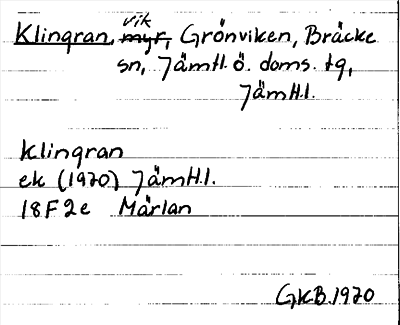 Klingran, vik myr, Grönviken, Bräcke
sn, Jämtl. ö. doms. tg,
Jämtl.
Klingran
ek (1970) Jämtl.
18F2e Märlan
GKB.1970